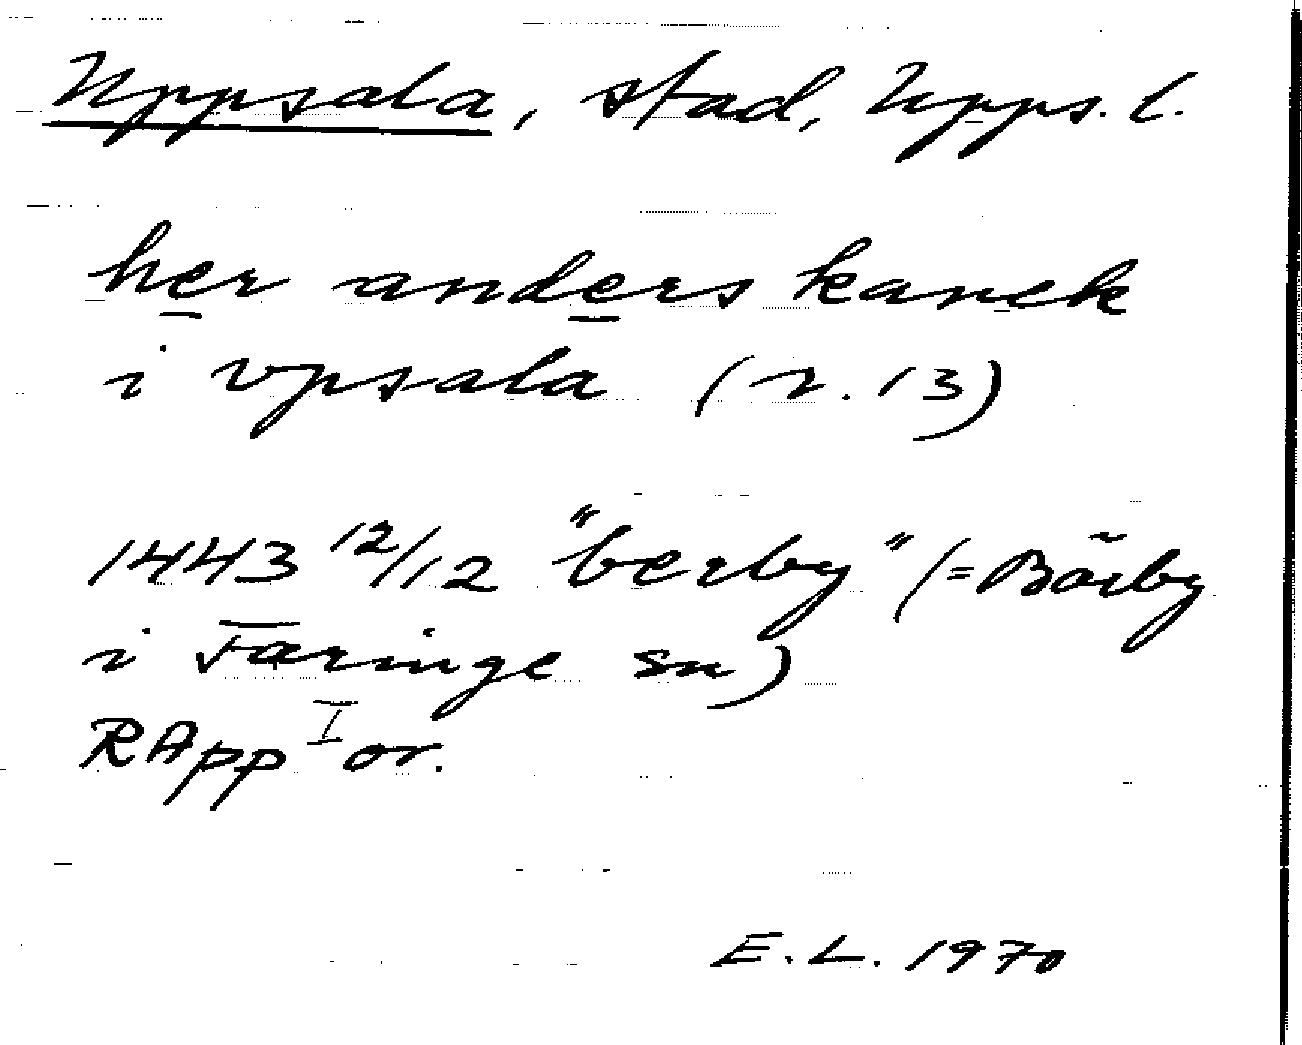 Uppsala, stad, Upps. l.
her anders kanek
i vpsala (r. 13)
1443 12/12 "berby" (= Bärby
i Faringe sn)
RApp I or.
E. L. 1970